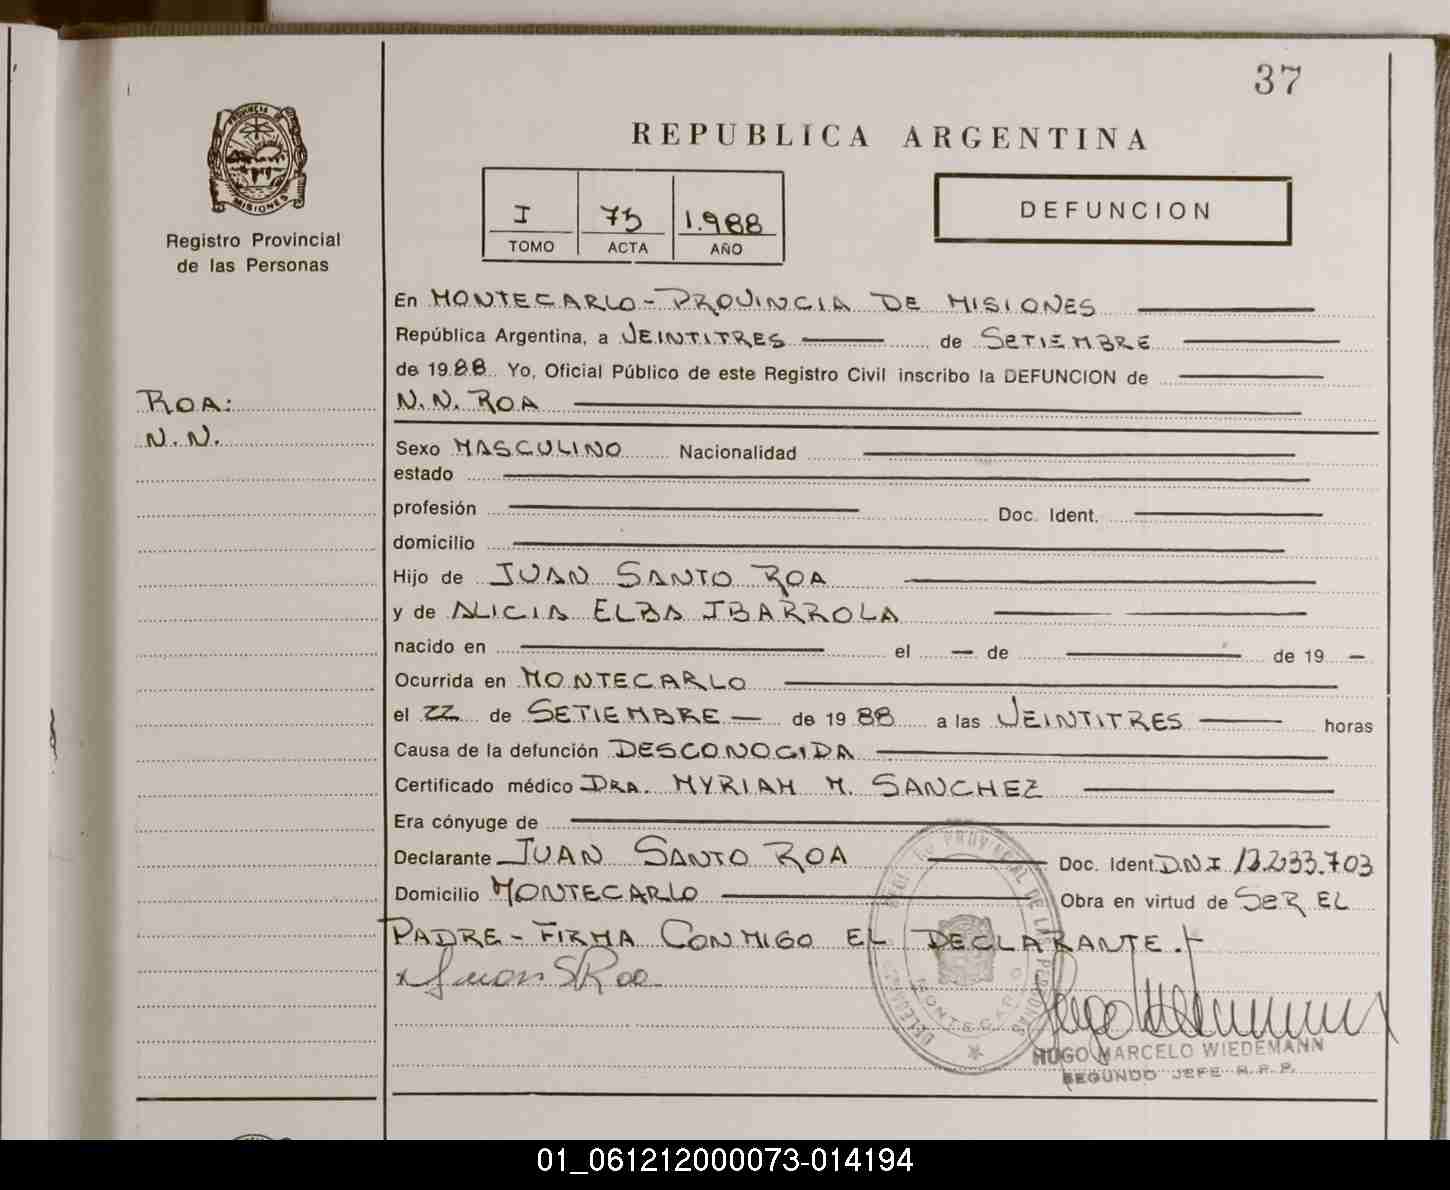 37
REPUBLICA ARGENTINA
PROVINCIA DE
MISIONES
Registro Provincial
de las Personas
I 75 1.988
TOMO ACTA AÑO
DEFUNCION
En MONTECARLO - PROVINCIA DE MISIONES
República Argentina, a VEINTITRES de SETIEMBRE
de 1988 Yo, Oficial Público de este Registro Civil inscribo la DEFUNCION de
ROA:
N.N.
N.N. ROA
Sexo MASCULINO Nacionalidad
estado
profesión Doc. Ident.
domicilio
Hijo de JUAN SANTO ROA
y de ALICIA ELBA IBARROLA
nacido en el — de de 19 —
Ocurrida en MONTECARLO
el 22 de SETIEMBRE — de 19 88 a las VEINTITRES horas
Causa de la defunción DESCONOCIDA
Certificado médico DRA. MYRIAM M. SANCHEZ
Era cónyuge de
Declarante JUAN SANTO ROA Doc. Ident. D.N.I. 12.233.703
Domicilio MONTECARLO Obra en virtud de SER EL
PADRE - FIRMA CONMIGO EL DECLARANTE.
Juan S Roa
PROVINCIAL DE LAS PERSONAS
MONTECARLO
HUGO MARCELO WIEDEMANN
SEGUNDO JEFE R.P.P.
01_061212000073-014194